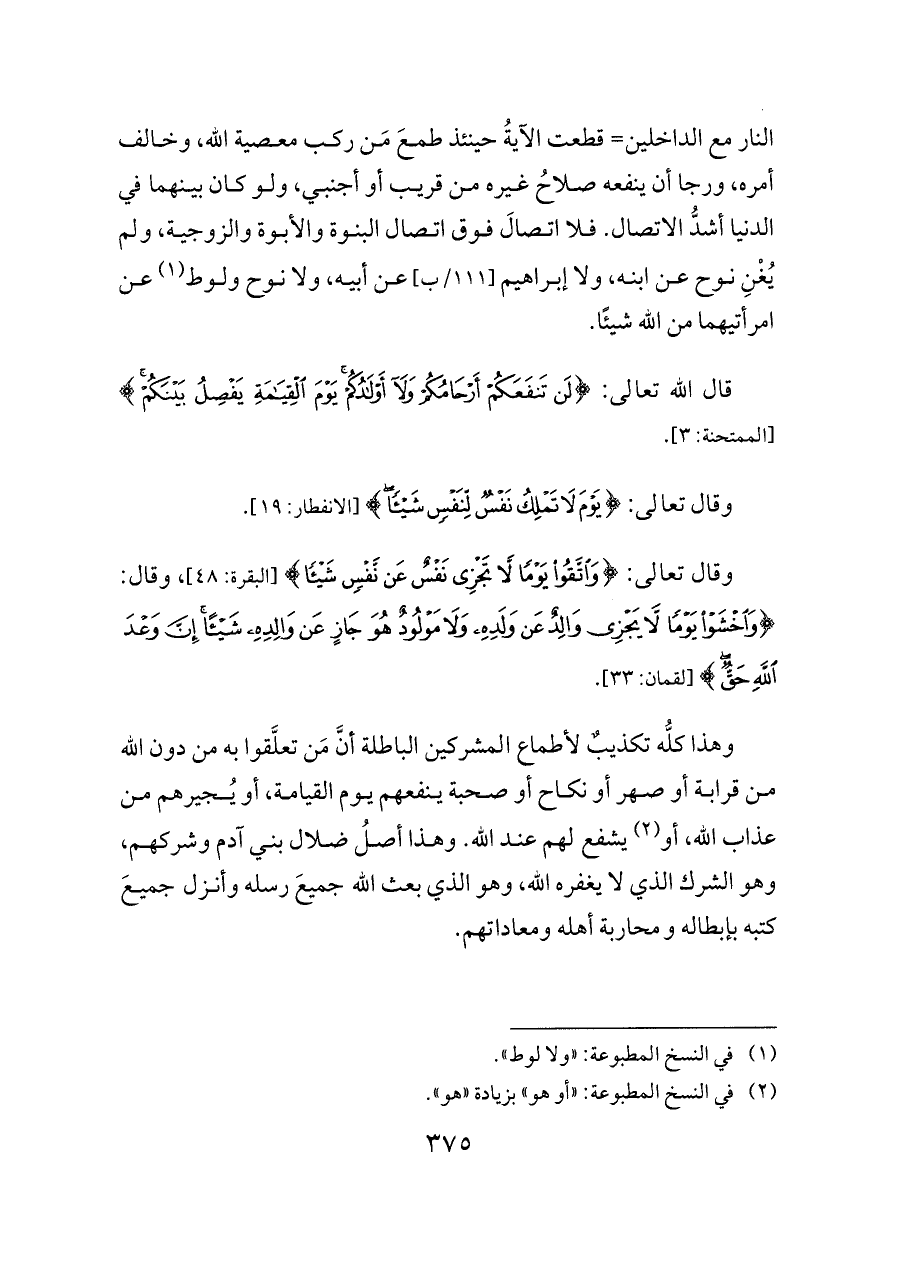 النار مع الداخلين= قطعت الآيةُ حينئذ طمعَ مَن ركب معصية الله، وخالف
أمره، ورجا أن ينفعه صلاحُ غيره من قريب أو أجنبي، ولو كان بينهما في
الدنيا أشدُّ الاتصال. فلا اتصالَ فوق اتصال البنوة والأبوة والزوجية، ولم
يُغْنِ نوح عن ابنه، ولا إبراهيم [١١١/ ب] عن أبيه، ولا نوح ولوط(١) عن
امرأتيهما من الله شيئًا.
قال الله تعالى: ﴿لَن تَنفَعَكُمْ أَرْحَامُكُمْ وَلَآ أَوْلَٰدُكُمْ ۚ يَوْمَ ٱلْقِيَٰمَةِ يَفْصِلُ بَيْنَكُمْ ۚ﴾
[الممتحنة: ٣].
وقال تعالى: ﴿يَوْمَ لَا تَمْلِكُ نَفْسٌ لِّنَفْسٍ شَيْـًٔا ۖ﴾ [الانفطار: ١٩].
وقال تعالى: ﴿وَٱتَّقُوا۟ يَوْمًا لَّا تَجْزِى نَفْسٌ عَن نَّفْسٍ شَيْـًٔا﴾ [البقرة: ٤٨]، وقال:
﴿وَٱخْشَوْا۟ يَوْمًا لَّا يَجْزِى وَالِدٌ عَن وَلَدِهِۦ وَلَا مَوْلُودٌ هُوَ جَازٍ عَن وَالِدِهِۦ شَيْـًٔا ۚ إِنَّ وَعْدَ
ٱللَّهِ حَقٌّ ۖ﴾ [لقمان: ٣٣].
وهذا كلُّه تكذيبٌ لأطماع المشركين الباطلة أنَّ مَن تعلَّقوا به من دون الله
من قرابة أو صهر أو نكاح أو صحبة ينفعهم يوم القيامة، أو يُجيرهم من
عذاب الله، أو(٢) يشفع لهم عند الله. وهذا أصلُ ضلال بني آدم وشركهم،
وهو الشرك الذي لا يغفره الله، وهو الذي بعث الله جميعَ رسله وأنزل جميعَ
كتبه بإبطاله و محاربة أهله ومعاداتهم.
(١) في النسخ المطبوعة: «ولا لوط».
(٢) في النسخ المطبوعة: «أو هو» بزيادة «هو».
٣٧٥